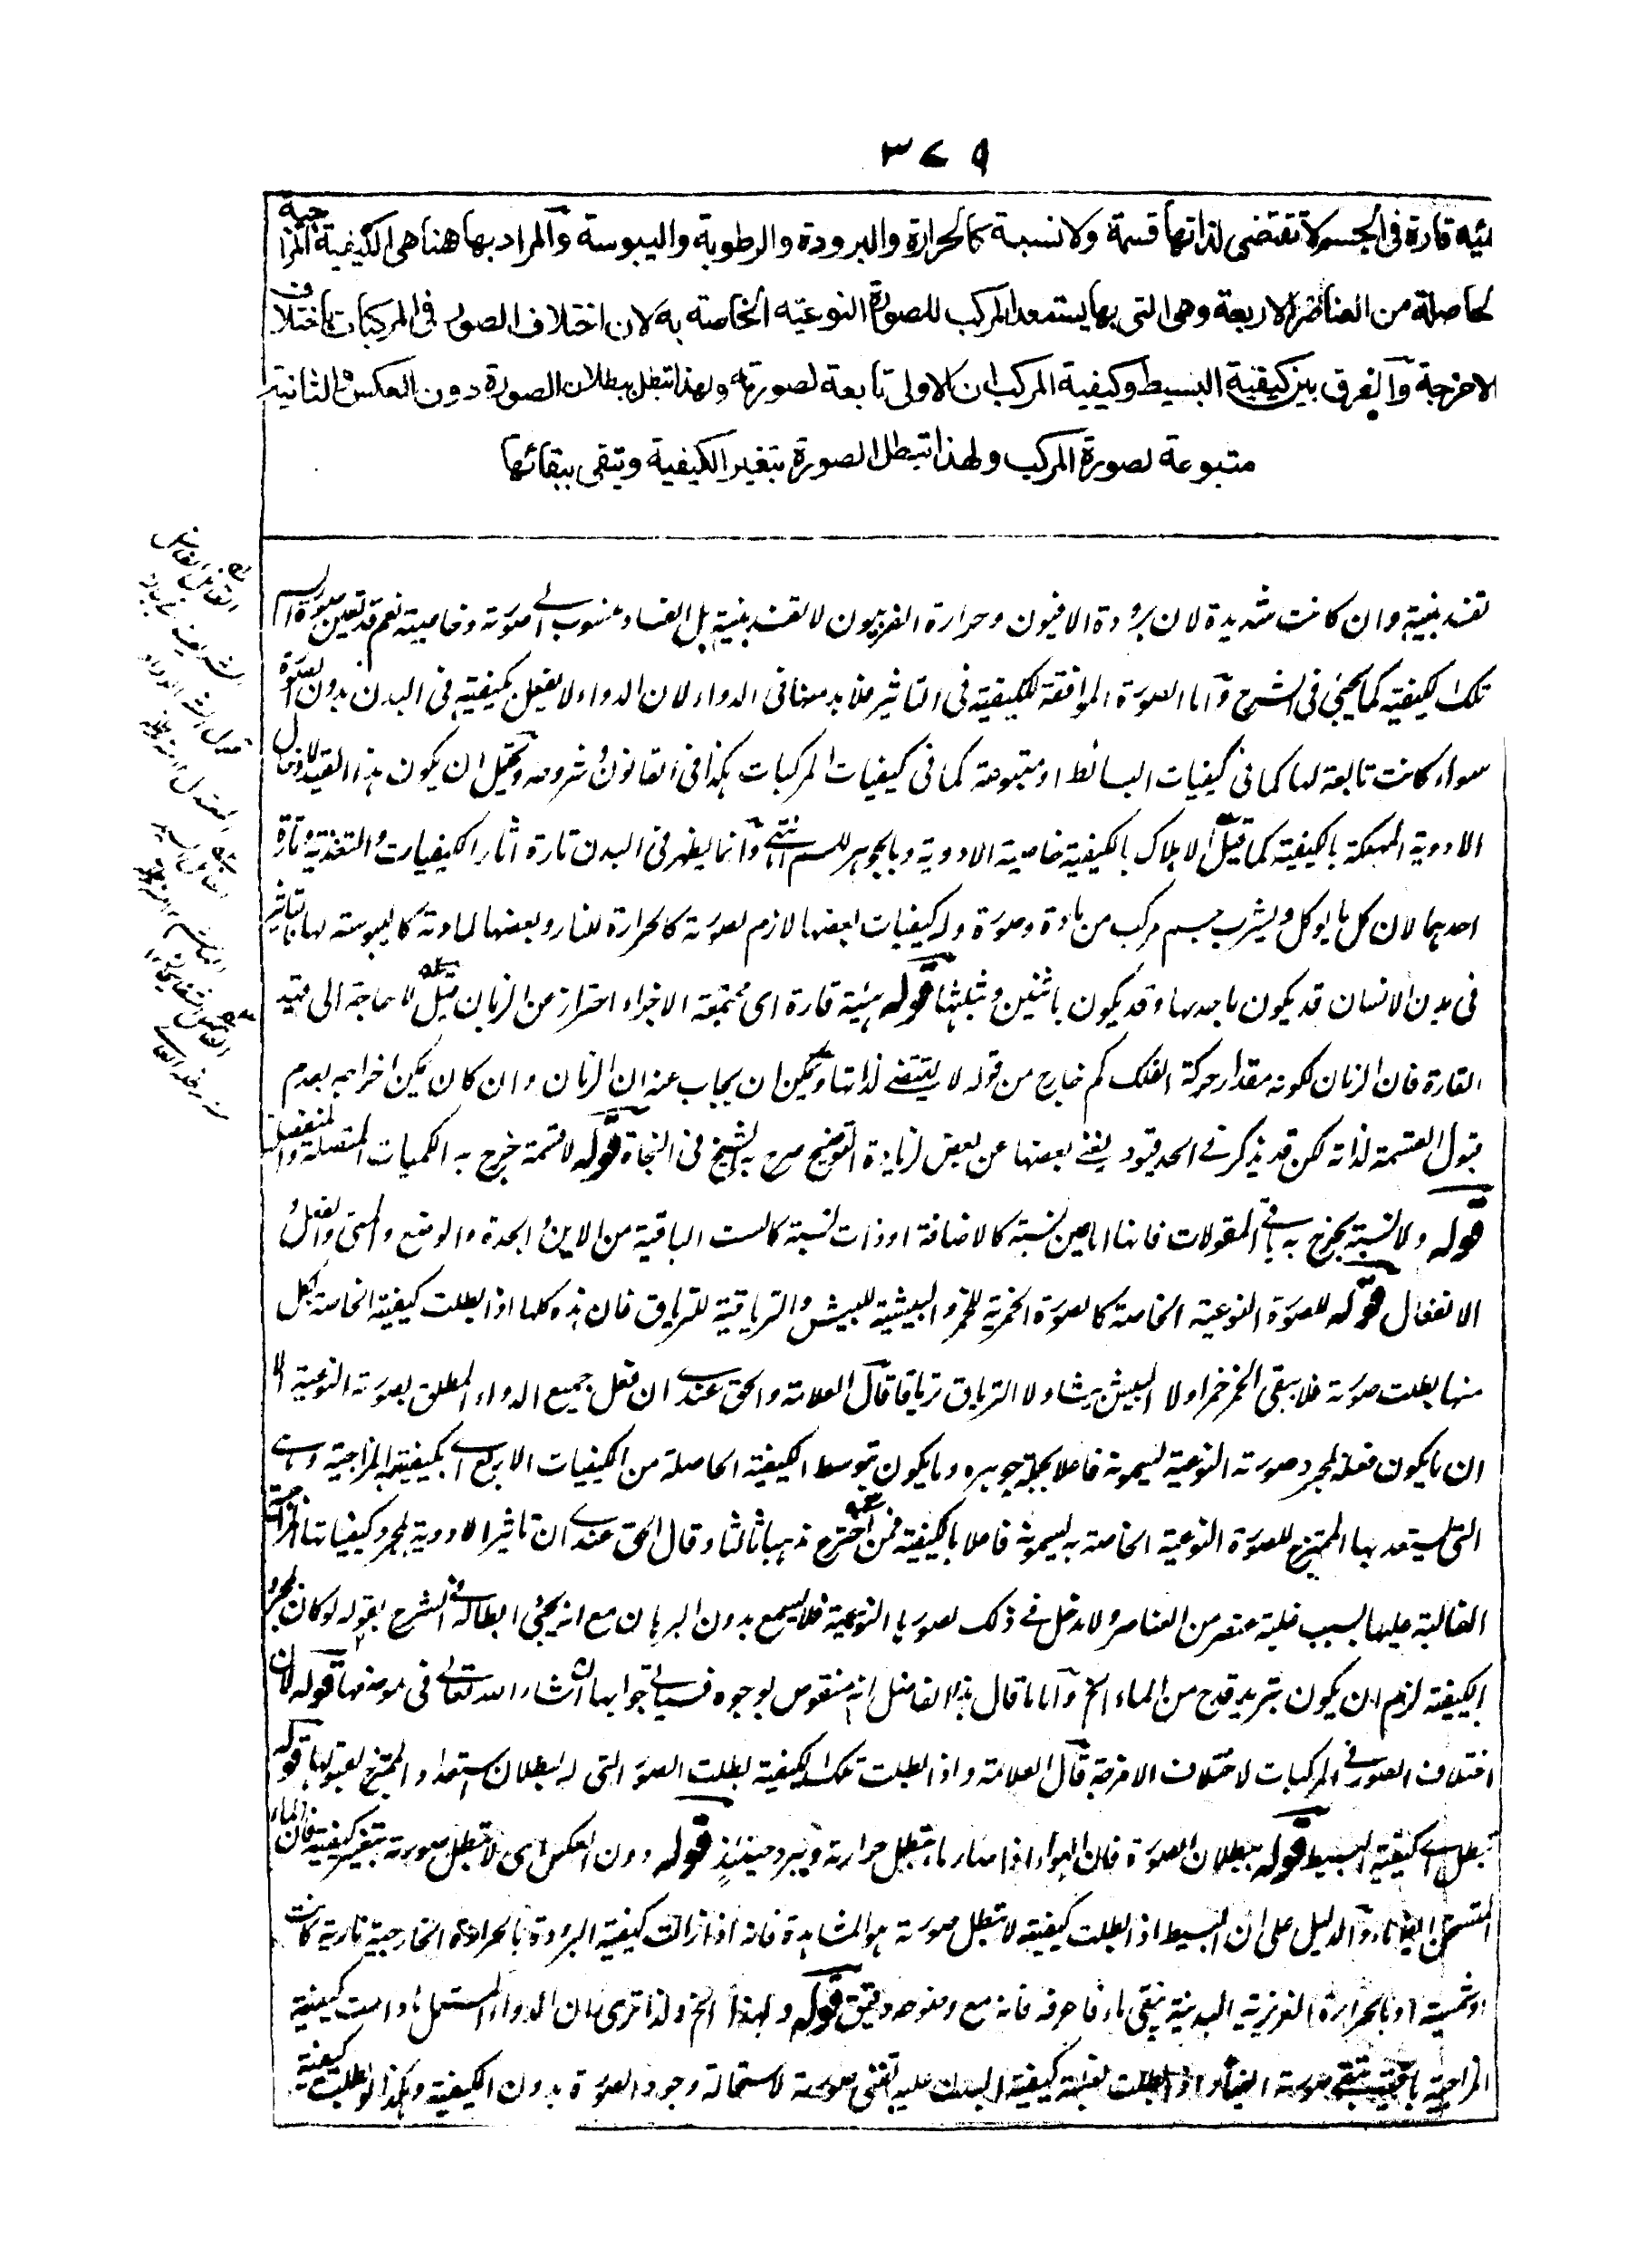 ٣٧٩
هيئة قارة فى الجسم لا تقتضى لذاتها قسمة ولا نسبة كالحرارة والبرودة والرطوبة واليبوسة والمراد بها هنا هى الكيفية المزاجية
الحاصلة من العناصر الاربعة وهى التى بها يستعد المركب للصورة النوعية الخاصة به لان اختلاف الصور فى المركبات باختلاف
الامزجة والفرق بين كيفية البسيط وكيفية المركب ان الاولى تابعة لصورته ولهذا تبطل ببطلان الصورة دون العكس والثانية
متبوعة لصورة المركب ولهذا تبطل الصورة بتغير الكيفية وتبقى ببقائها
تفسد بنيته وان كانت شديدة لان برودة الافيون وحرارة الفربيون لا تفسد بنيته بل الفساد منسوب الى صورته وخاصيته نعم قد تعين صورة السم
تلك الكيفية كما يجئ فى الشرح وآما الصورة الموافقة للكيفية فى التاثير فلا بد منها فى الدواء لان الدواء لا يفعل بكيفيته فى البدن بدون الصورة
سواء كانت تابعة لها كما فى كيفيات البسائط او متبوعة كما فى كيفيات المركبات هكذا فى القانون وشروحه ويحتمل ان يكون هذا القيد لادخال
الادوية المهلكة بالكيفية كما قيل الاهلاك بالكيفية خاصية الادوية وبالجوهر للسم انتهى وانما يظهر فى البدن تارة آثار الكيفيات والتغذية وتارة
احدهما لان كل ما يوكل ويشرب جسم مركب من مادة وصورة وله كيفيات بعضها لازم لصورته كالحرارة للنار وبعضها لمادته كاليبوسة لها وتاثيره
فى بدن الانسان قد يكون باحدها وقد يكون باثنين وبثلثها قوله هيئة قارة اى مجتمعة الاجزاء احتراز من الزمان قيل لا حاجة الى قيد
القارة فان الزمان لكونه مقدار حركة الفلك كم خارج من قوله لا يقتضى لذاتها ويمكن ان يجاب عنه ان الزمان وان كان يمكن اخراجه بعدم
قبول القسمة لذاته لكن قد يذكر فى الحد قيود يغنى بعضها عن بعض لزيادة التوضيح صرح به الشيخ فى النجاة قوله لا قسمة خرج به الكميات المتصلة والمنفصلة
قوله ولا نسبة يخرج به باقى المقولات فانها اما عين نسبة كالاضافة او ذات نسبة كالست الباقية من الاين والجدة والوضع والمتى والفعل و
الانفعال قوله للصورة النوعية الخاصة كالصورة الخمرية للخمر والبيشية للبيش والترياقية للترياق فان هذه كلها اذا بطلت كيفية الخاصة بكل
منها بطلت صورته فلا يبقى الخمر خمرا ولا البيش بيشا ولا الترياق ترياقا قال العلامة والحق عندى ان فعل جميع الدواء المطلق بصورته النوعية الا
ان ما يكون فعله لمجرد صورته النوعية ليسمونه فاعلا بجملة جوهره وما يكون بتوسط الكيفية الحاصلة من الكيفيات الاربع اى بكيفيته المزاجية وهى
التى يستعد بها الممتزج للصورة النوعية الخاصة به ليسمونه فاعلا بالكيفية فمن اخترع مذهبا ثالثا وقال الحق عندى ان تاثير الادوية لمجرد كيفياتها المزاجية
الغالبة عليها بسبب غلبة عنصر من العناصر ولا دخل فى ذلك لصورها النوعية فلا يسمع بدون البرهان مع انه يجئ ابطاله فى الشرح بقوله لو كان بمجرد
الكيفية لزم ان يكون تبريد قدح من الماء الخ وآما ما قال هذا الفاضل انه منقوض بوجوه فسياتى جوابها ان شاء الله تعالى فى موضعها قوله لان
اختلاف الصور فى المركبات لاختلاف الامزجة قال العلامة واذا بطلت تلك الكيفية بطلت الصورة التى له لبطلان استعداد الممتزج لقبولها قوله
تبطل اى كيفية البسيط قوله ببطلان الصورة فان الهواء اذا صار ماء تبطل حرارته ويبرد حينئذ قوله دون العكس اى لا تبطل صورته بتغير كيفيته فان الماء
المتسخن ايضا ماء والدليل على ان البسيط اذا بطلت كيفيته لا تبطل صورته هو المشاهدة فانه اذا زالت كيفية البرودة بالحرارة الخارجية نارية كانت
او شمسية او بالحرارة الغريزية البدنية يبقى ماء فاعرفه فانه مع وضوحه دقيق قوله ولهذا الخ ولذا ترى ان الدواء المستعمل ما دامت كيفيته
المزاجية باقية تبقى صورته ايضا واذا بطلت بغلبة كيفية البدن عليه تفنى صورته لاستحالة وجود الصورة بدون الكيفية وهكذا لو بطلت كيفية